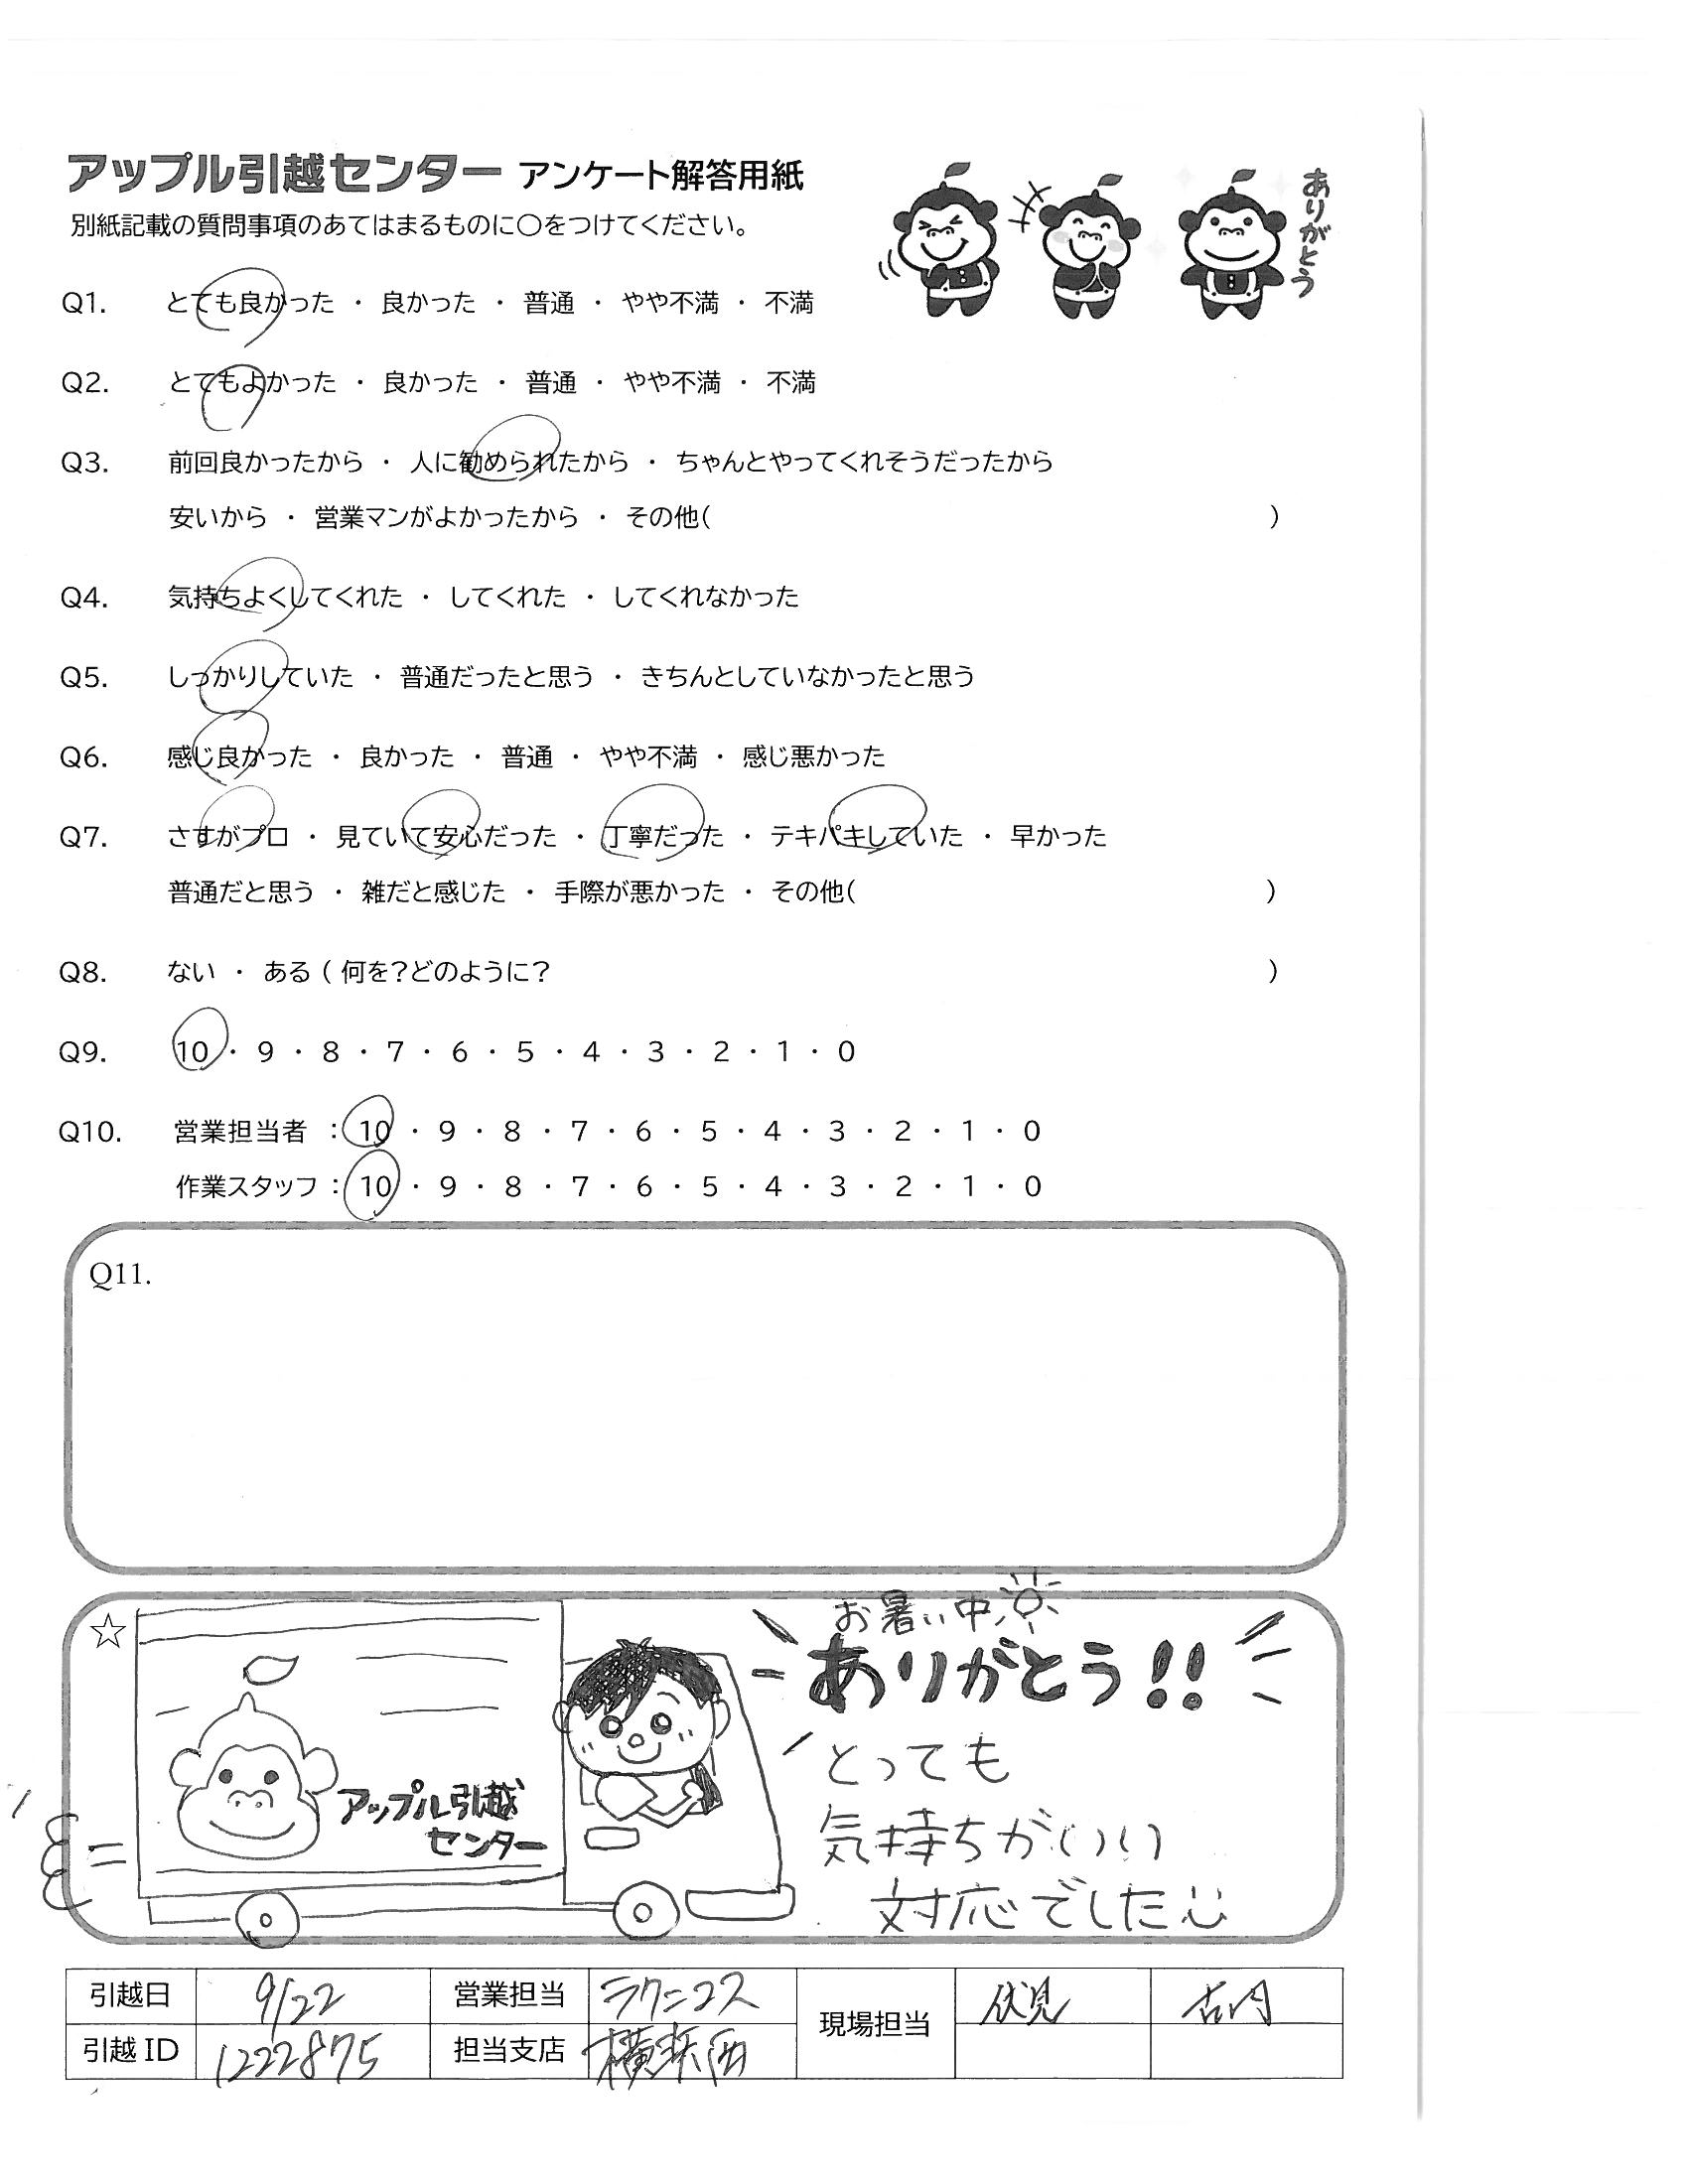 アップル引越センター アンケート解答用紙
別紙記載の質問事項のあてはまるものに○をつけてください。
ありがとう
Q1. とても良かった ・ 良かった ・ 普通 ・ やや不満 ・ 不満
Q2. とてもよかった ・ 良かった ・ 普通 ・ やや不満 ・ 不満
Q3. 前回良かったから ・ 人に勧められたから ・ ちゃんとやってくれそうだったから
安いから ・ 営業マンがよかったから ・ その他( )
Q4. 気持ちよくしてくれた ・ してくれた ・ してくれなかった
Q5. しっかりしていた ・ 普通だったと思う ・ きちんとしていなかったと思う
Q6. 感じ良かった ・ 良かった ・ 普通 ・ やや不満 ・ 感じ悪かった
Q7. さすがプロ ・ 見ていて安心だった ・ 丁寧だった ・ テキパキしていた ・ 早かった
普通だと思う ・ 雑だと感じた ・ 手際が悪かった ・ その他( )
Q8. ない ・ ある ( 何を?どのように? )
Q9. 10 ・ 9 ・ 8 ・ 7 ・ 6 ・ 5 ・ 4 ・ 3 ・ 2 ・ 1 ・ 0
Q10. 営業担当者 : 10 ・ 9 ・ 8 ・ 7 ・ 6 ・ 5 ・ 4 ・ 3 ・ 2 ・ 1 ・ 0
作業スタッフ : 10 ・ 9 ・ 8 ・ 7 ・ 6 ・ 5 ・ 4 ・ 3 ・ 2 ・ 1 ・ 0
Q11.
☆
アップル引越
センター
お暑い中
ありがとう!!
とっても
気持ちがいい
対応でした
引越日 9/22 営業担当 ラクニコス 現場担当 伏見 古内
引越ID 1222875 担当支店 横浜西